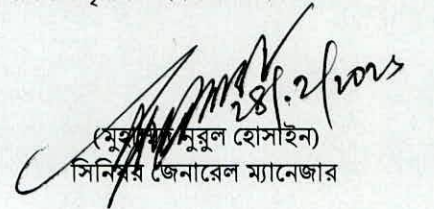 28/.2/2025
(মুহাম্মদ নুরুল হোসাইন)
সিনিয়র জেনারেল ম্যানেজার